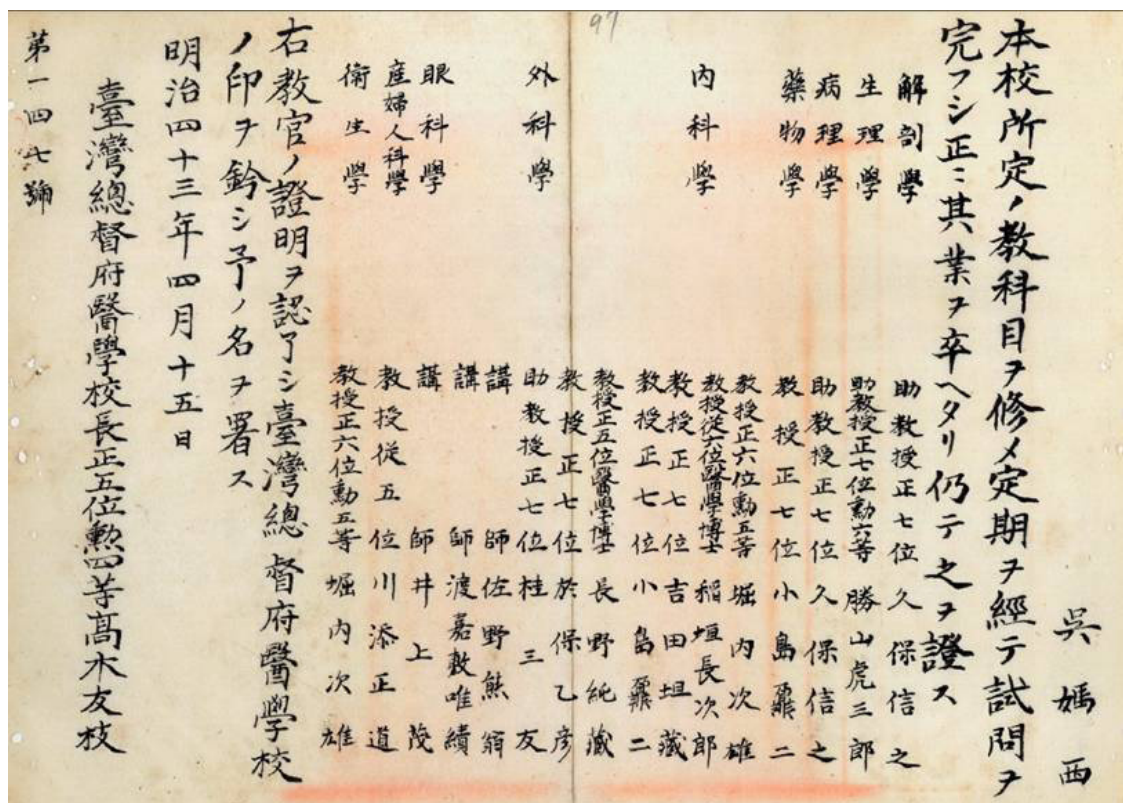 吳媽西
本校所定ノ教科目ヲ修メ定期ヲ經テ試問ヲ
完フシ正ニ其業ヲ卒ヘタリ仍テ之ヲ證ス
解剖學 助教授正七位久保信之
生理學 助教授正七位勳六等勝山虎三郎
病理學 助教授正七位久保信之
藥物學 教授正七位小島鼐二
內科學 教授正六位勳五等堀內次雄
教授從六位醫學博士稻垣長次郎
教授正七位吉田坦藏
教授正七位小島鼐二
外科學 教授正五位醫學博士長野純藏
教授正七位於保乙彥
助教授正七位桂三友
講師佐野熊翁
講師渡嘉敷唯績
眼科學 講師井上茂
產婦人科學 教授從五位川添正道
衛生學 教授正六位勳五等堀內次雄
右教官ノ證明ヲ認了シ臺灣總督府醫學校
ノ印ヲ鈐シ予ノ名ヲ署ス
明治四十三年四月十五日
臺灣總督府醫學校長正五位勲四等髙木友枝
第一四七號
97